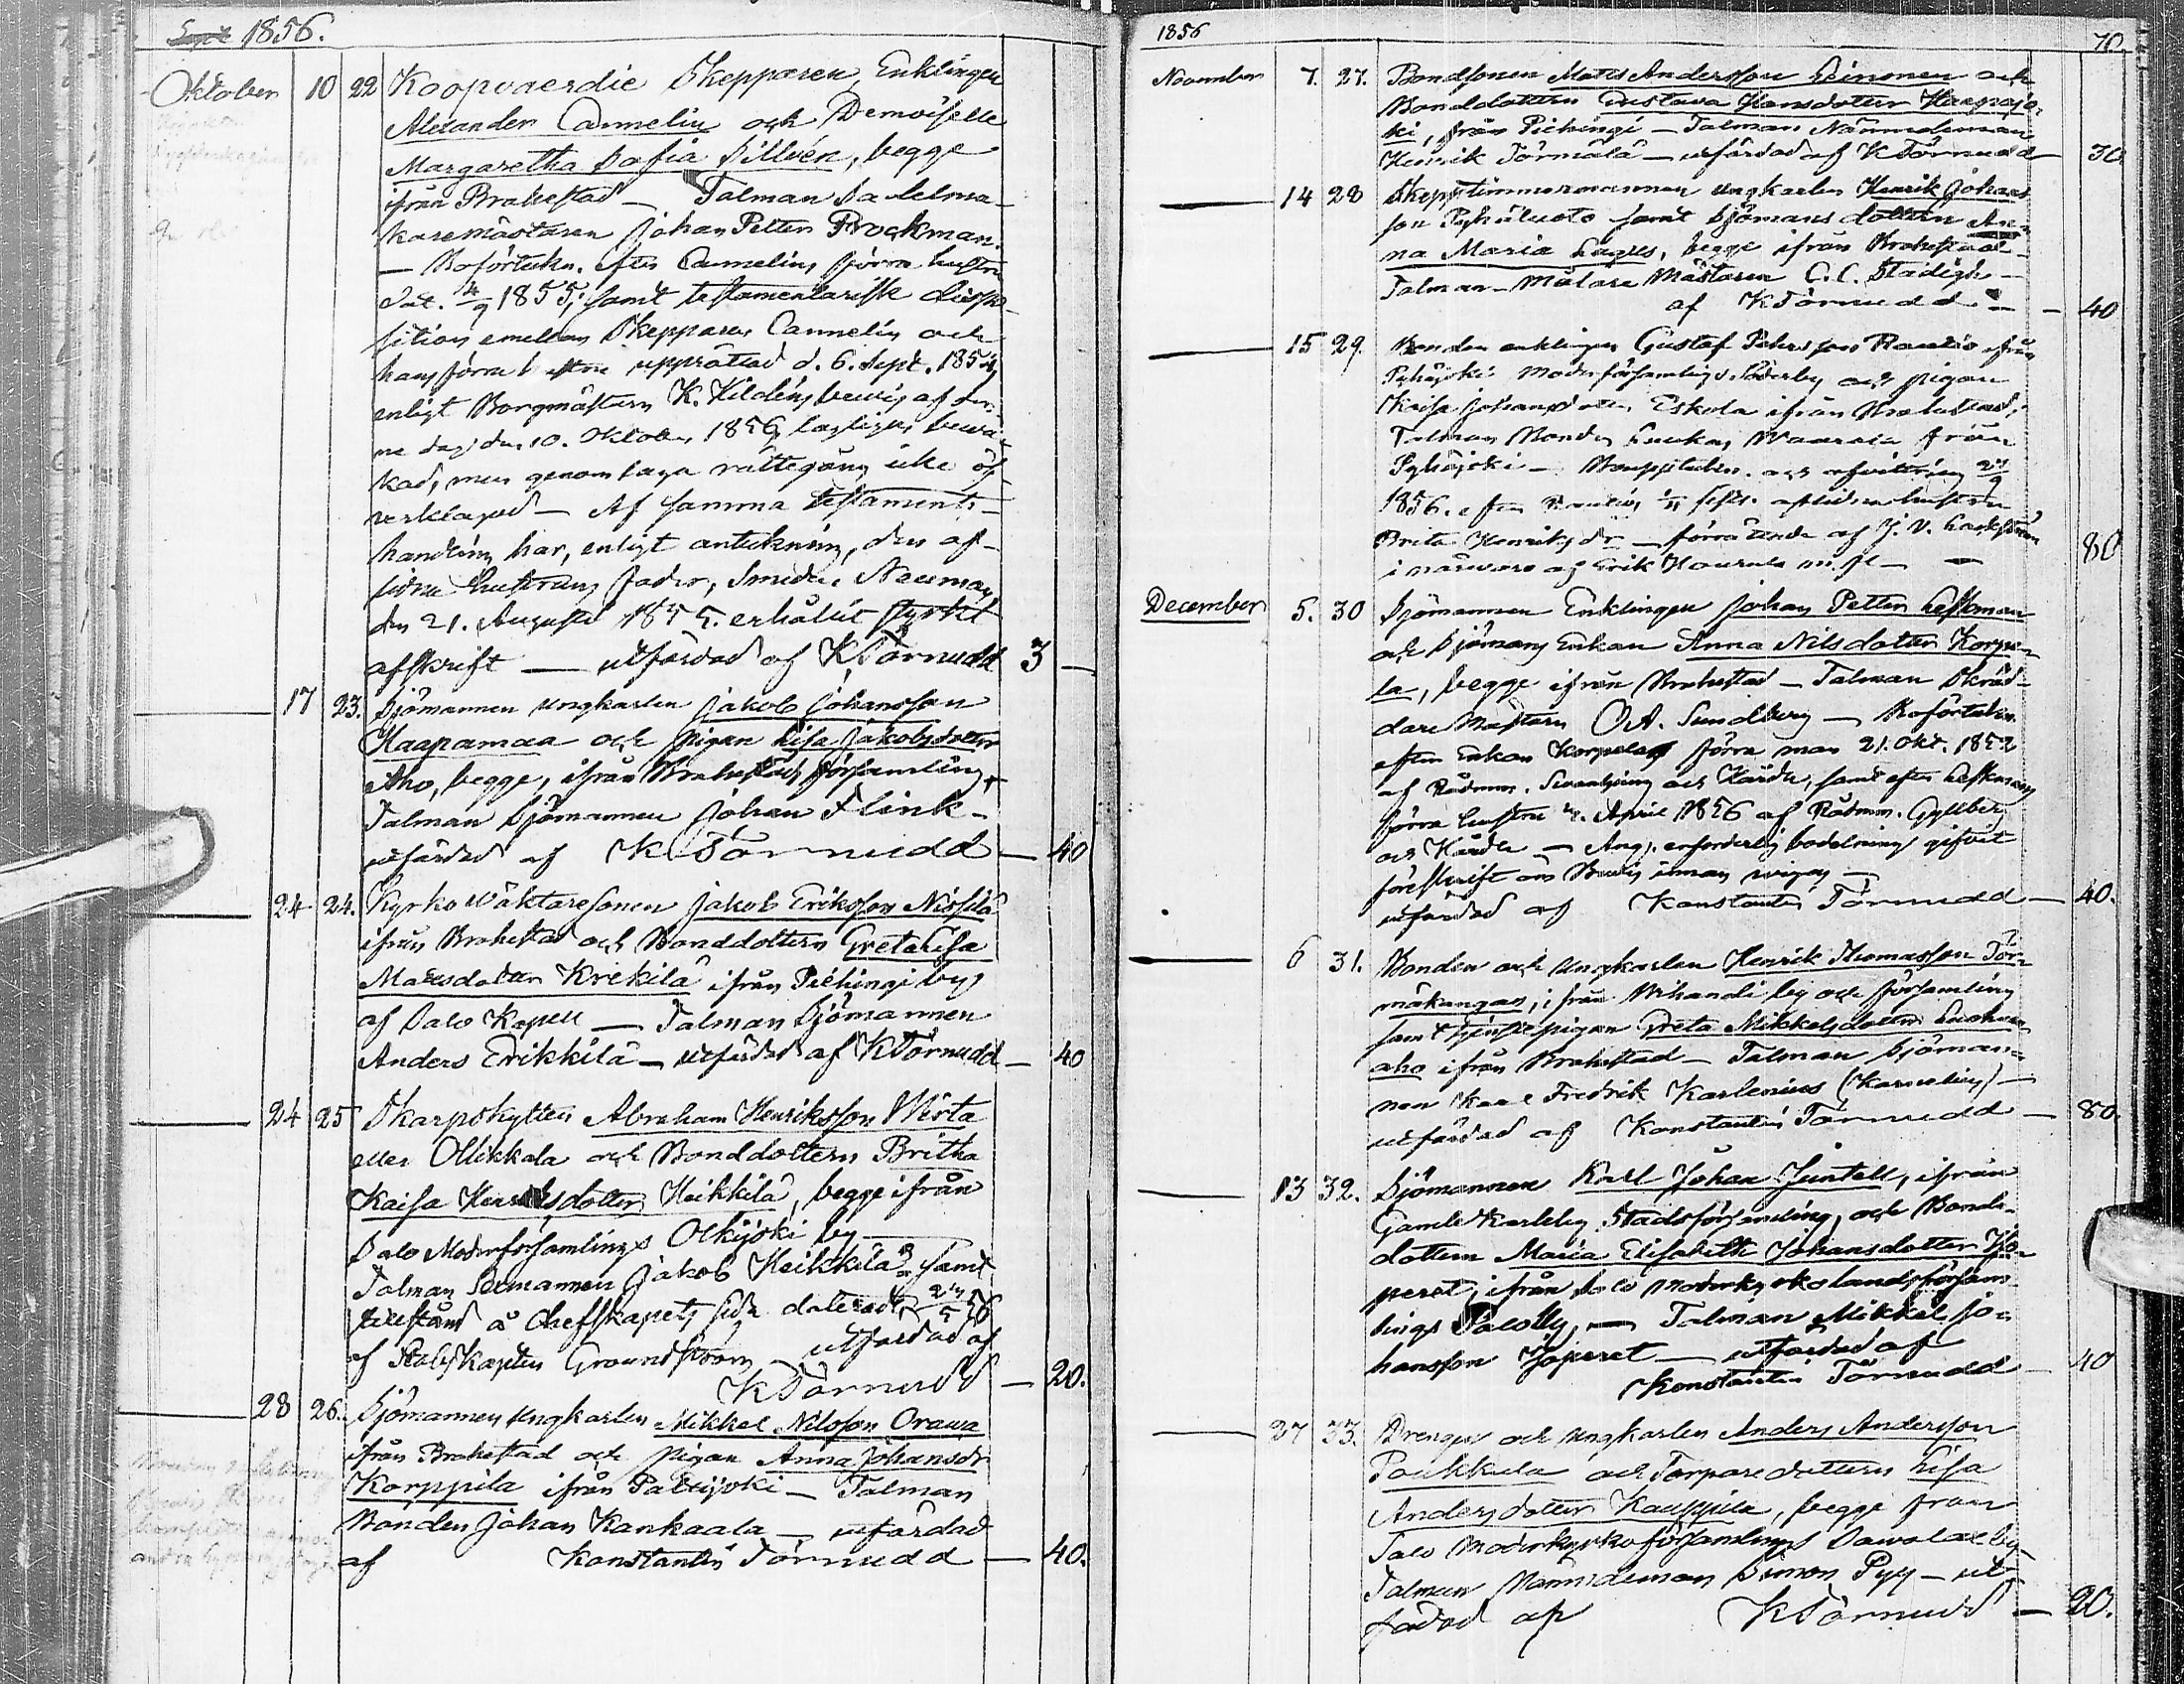 1856.
Oktober 10 22 Koopvaerdie Skepparen, Enklingen
Alexander Cannelin och Demoiselle
Margaretha Sofia Sillvén, begge
ifrån Brahestad — Talman Sadelma-
karemästaren Johan Petter Brockman.
— Boförteckn. efter Cannelins förra hustru
dat. 4/9 1855; samt testamentarisk dispo-
sition emellan Skepparen Cannelin och
hans förra hustru upprättad d. 6. Sept. 1854,
enligt Borgmästaren K. Kildéns bewis af den-
ne dag den 10. Oktober 1856, lagligen bewa-
kad, men genom laga rättegång icke öf-
verklagad — Af samma testaments-
handling har, enligt anteckning, den af-
lidna hustruns fader, Smeden Neuman
den 21. Augusti 1855. erhållit styrkt
afskrift — utfärdad af KTörnudd 3 —
17 23. Sjömannen Ungkarlen Jakob Johansson
Haapamaa och pigan Lisa Jakobsdotter
Aho, begge, ifrån Brahestads församling,
Talman Sjömannen Johan Flink —
utfärdad af KTörnudd — 40
24 24. Kyrkowäktaresonen Jakob Eriksson Nissilä
ifrån Brahestad och Bonddottern Greta Lisa
Matsdotter Krekilä ifrån Piehingi by
af Salo Kapell — Talman Sjömannen
Anders Erikkilä — utfärdad af KTörnudd — 40
24 25 Skarpskytten Abraham Henriksson Wirta
eller Ollikkala och Bonddottern Britha
Kaisa Henriksdotter Heikkilä, begge ifrån
Salo Moderförsamlings Olkijoki by —
Talman Sexmannen Jakob Heikkilä — samt
tillstånd å Chefskapets sida dateradt
af Stabskapten Groundstroem — utfärdad af
KTörnudd — 20.
28 26. Sjömannen Ungkarlen Mikkel Nilsson Orawa
ifrån Brahestad och pigan Anna Johansdr
Korppila ifrån Pattijoki — Talman
Bonden Johan Kankaala — utfärdad
af Konstantin Törnudd — 40.
1856 70.
November 7. 27. Bondsonen Mats Andersson Leinonen och
Bonddottern Gustava Hansdotter Haapajo-
ki, från Piehingi — Talman Nämndeman
Henrik Törmälä — utfärdad af KTörnudd — 30
14 28 Skeppstimmermannen Ungkarlen Henrik Johans-
son Pyhäluoto samt Sjömansdottern An-
na Maria Lagus, begge ifrån Brahestad —
Talman — Målare Mästaren C. C. Stadigh —
af KTörnudd — 40
15 29. Bonden enklingen Gustaf Pehrsson Rautio ifrån
Pyhäjoki Moderförsamlings Söderby och pigan
Kaisa Johansdotter Eskola ifrån Brahestad,
Talman Bonden från
Pyhäjoki — Bouppteckn. och afvittring 27/9
1856. efter aflidna hustru
Brita Henriksdr — förrättade af J. V.
i närvaro af Erik m. fl — 80
December 5. 30 Sjömannen Enklingen Johan Petter Lessman
och Sjömans Enkan Anna Nilsdotter Korpe-
la, begge ifrån Brahestad — Talman Skräd-
dare Mästaren O.A. Sundberg — Boförteckn.
efter Enkan Korpelas förra man 21. Okt. 1852
af Rådmm. och Hårdh, samt efter Lessmans
förra hustru April 1856 af Rådmm. Gyllberg
och Hårdh — Ang. erforderlig bodelning gifvit
föreskrift om Bewis innan wigsel —
utfärdad af Konstantin Törnudd — 40.
6 31. Bonden och Ungkarlen Henrik Thomasson Tör-
mäkangas, ifrån Wihandi by och församling
samt tjenstepigan Greta Mikkelsdotter
aho ifrån Brahestad — Talman Sjöman-
nen Karl Fredrik Karlenius (Karnelius) —
utfärdad af Konstantin Törnudd — 80.
13 32. Sjömannen Karl Johan Juntell, ifrån
Gamlekarleby Stadsförsamling, och Bond-
dottern Maria Elisabeth Johansdotter Jo-
peret, ifrån Salo Moderkyrkolandsförsam-
lings Saloby, — Talman Mikkel Jo-
hansson Joperet — utfärdad af
Konstantin Törnudd — 40
27 33. Drengen och Ungkarlen Anders Andersson
Paukkula och Torparedottern Lisa
Andersdotter Kauppila, begge från
Salo Moderkyrkoförsamlings Sawolax by
Talman Nämndeman Simon Pyy — ut-
färdad af KTörnudd — 20.